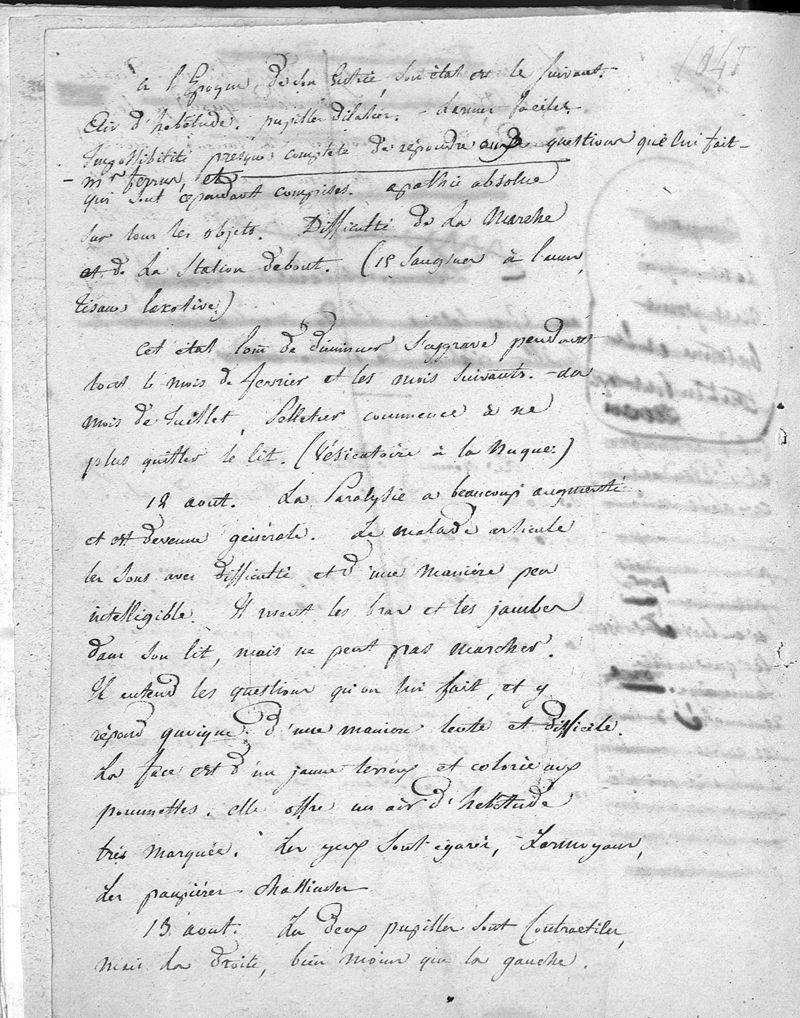 à l'Epoque de son Entrée, son état est le suivant.
Air d'hébétude. pupilles dilatées. - Larmes faciles.
Impossibilité presque complète de répondre aux questions que lui fait -
- mr ferrus, et
qui sont cependant comprises. apathie absolue
sur tous les objets. Difficulté de La Marche
et de La Station debout. (15 Sangsues à l'anus,
tisane laxative.)
Cet état loin de diminuer s'aggrave pendant
tout le mois de fevrier et les mois suivants. - au
mois de Juillet, Pelletier commence à ne
plus quitter le lit. (Vésicatoire à la Nuque.)
12 aout. La Paralysie a beaucoup augmenté
et est devenue générale. Le malade articule
les sons avec difficulté et d'une manière peu
intelligible. Il meut les bras et les jambes
dans son lit, mais ne peut pas marcher.
Il entend les questions qu'on lui fait, et y
répond quoique d'une manière lente et difficile.
La face est d'un jaune terreux et colorée aux
pommettes. elle offre un air d'hébétude
très marquée. Les yeux sont égarés, Larmoyans,
Les paupières chassieuses
13 aout. Les deux pupilles sont Contractiles,
mais La droite, bien moins que la gauche.